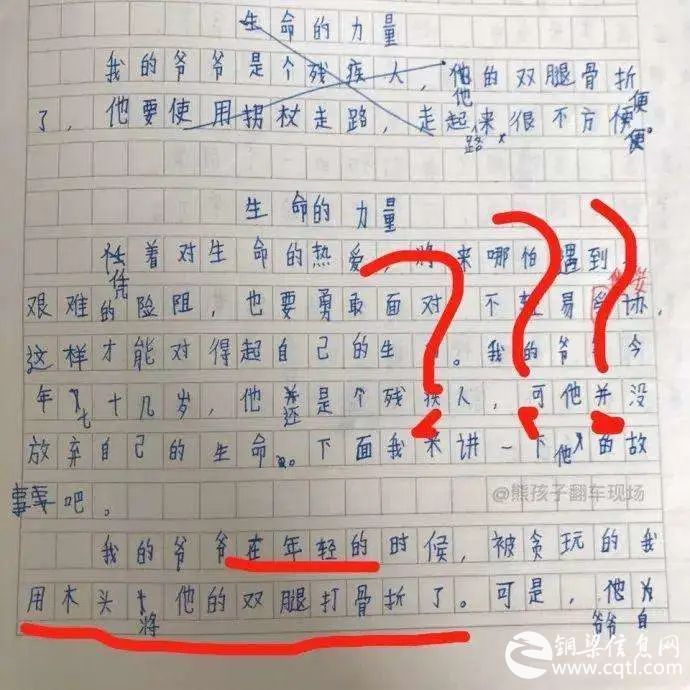 生命的力量
我的爷爷是个残疾人,他的双腿骨折
了,他要使用拐杖走路,走起路来很不方便。
生命的力量
凭着对生命的热爱,将来哪怕遇到
艰难的险阻,也要勇敢面对,不轻易妥协,
这样才能对得起自己的生。我的爷今
年七十几岁,他还是个残疾人,可他并没
放弃自己的生命。下面我来讲一下他的故
事吧。
@熊孩子翻车现场
我的爷爷在年轻的时候,被贪玩的我
用木头将他的双腿打骨折了。可是,他为
爷爷自
铜梁信息网
www.cqtl.com